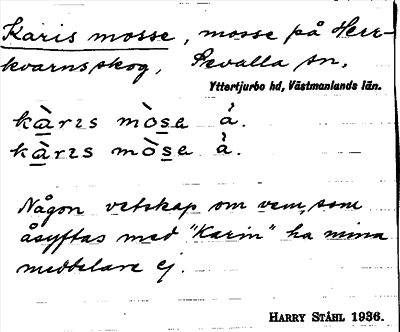 Karis mosse, mosse på Herr-
kvarnsskog, Sevalla sn,
Yttertjurbo hd, Västmanlands län.
kàrɪs mòsa å̀.
kàrɪs mòsa å̀.
Någon vetskap om vem, som
åsyftas med "Karin" ha mina
meddelare ej.
HARRY STÅHL 1936.